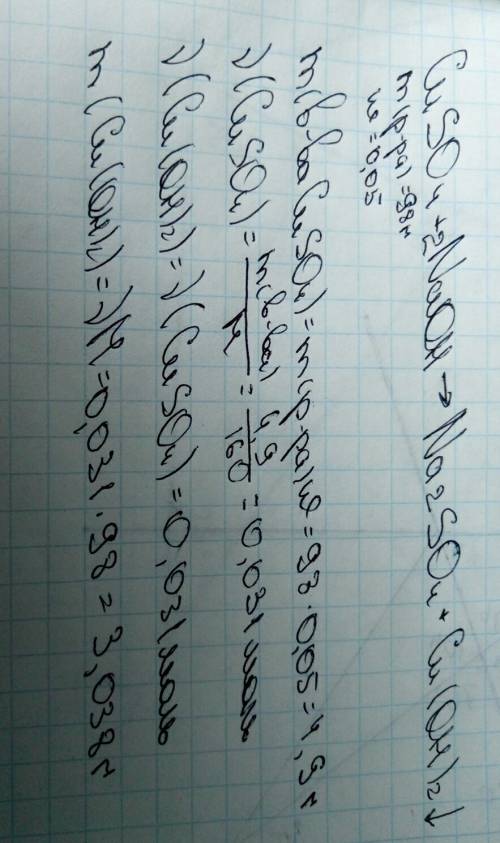 CuSO4 + 2NaOH → Na2SO4 + Cu(OH)2↓
m(р-ра) = 98г
ω = 0,05
m(в-ва CuSO4) = m(р-ра)·ω = 98·0,05 = 4,9г
ν(CuSO4) = m(в-ва)/M = 4,9/160 = 0,031 моль
ν(Cu(OH)2) = ν(CuSO4) = 0,031 моль
m(Cu(OH)2) = νM = 0,031·98 = 3,038г